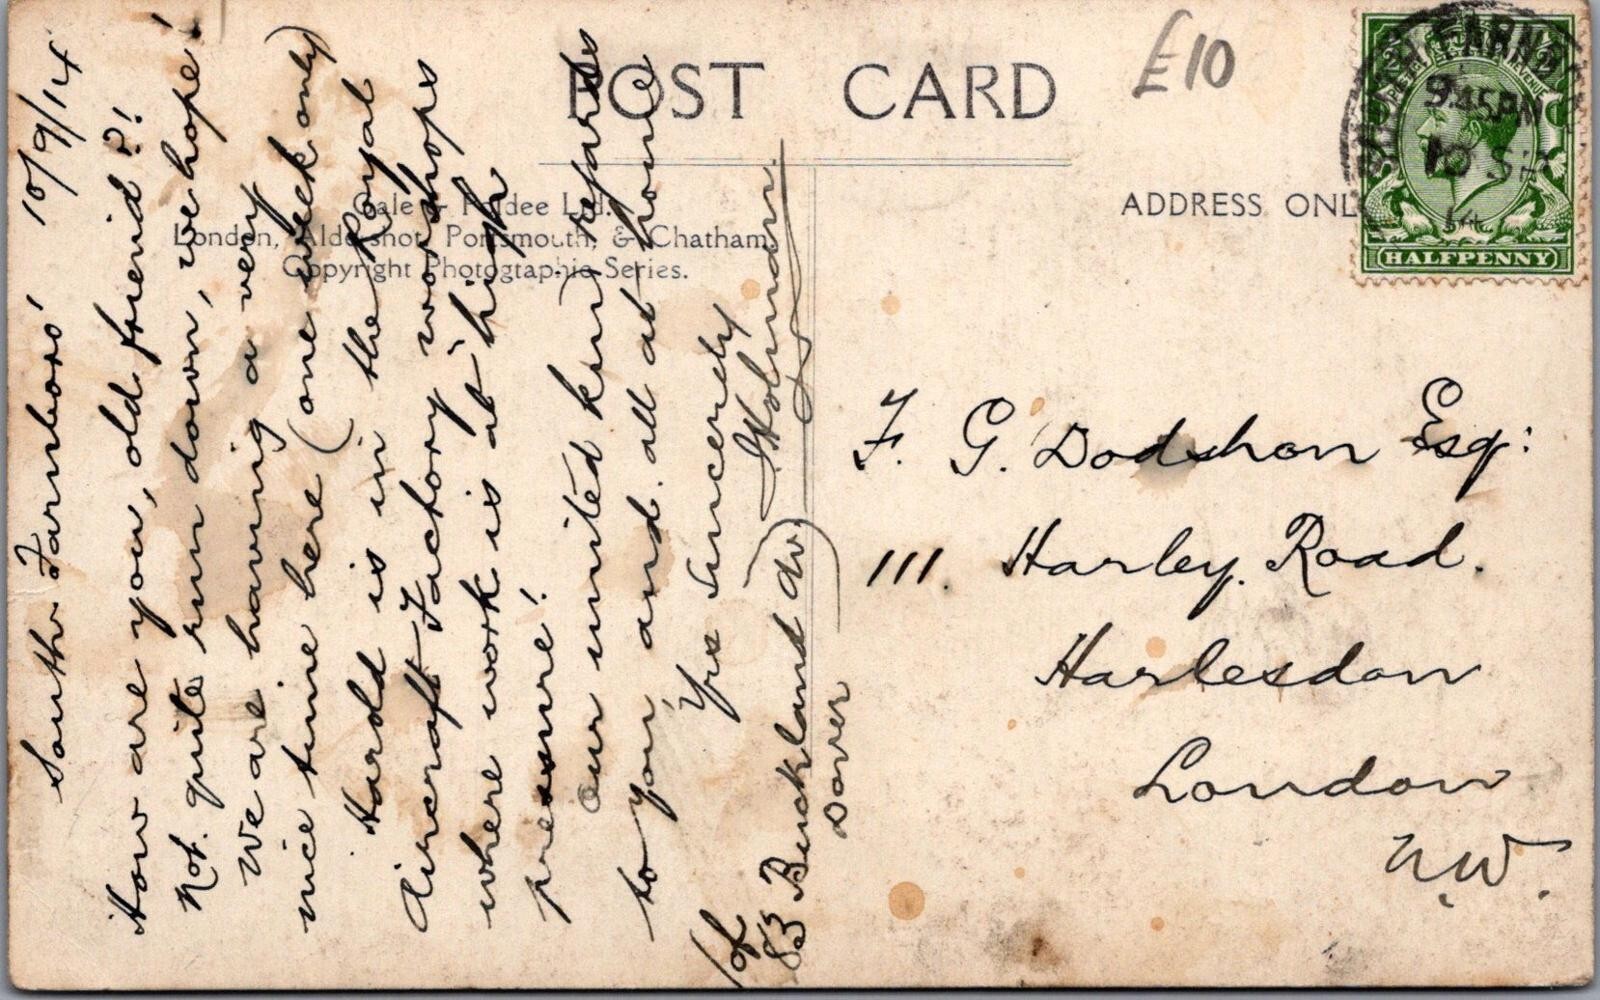 POST CARD
£10
Gale & Polden Ltd.
London, Aldershot, Portsmouth, & Chatham.
Copyright Photographic Series.
ADDRESS ONLY
9.45PM
10 SP
14
HALFPENNY
South Farnboro' 10/9/14
How are you, old friend?!
Not quite run down, we hope!
We are having a very
nice time here (one week only)
Harold is in the Royal
Aircraft Factory workshops
where work is at "high
pressure!
Our united kind regards
to you and all at home
Yrs sincerely
(of
83 Buckland Av)
Dover
F. G. Dodshon Esq:
111. Harley Road.
Harlesdon
London
N.W.